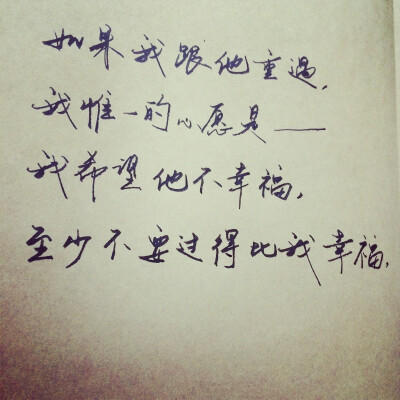 如果我跟他重遇,
我惟一的心愿是——
我希望他不幸福,
至少不要过得比我幸福.